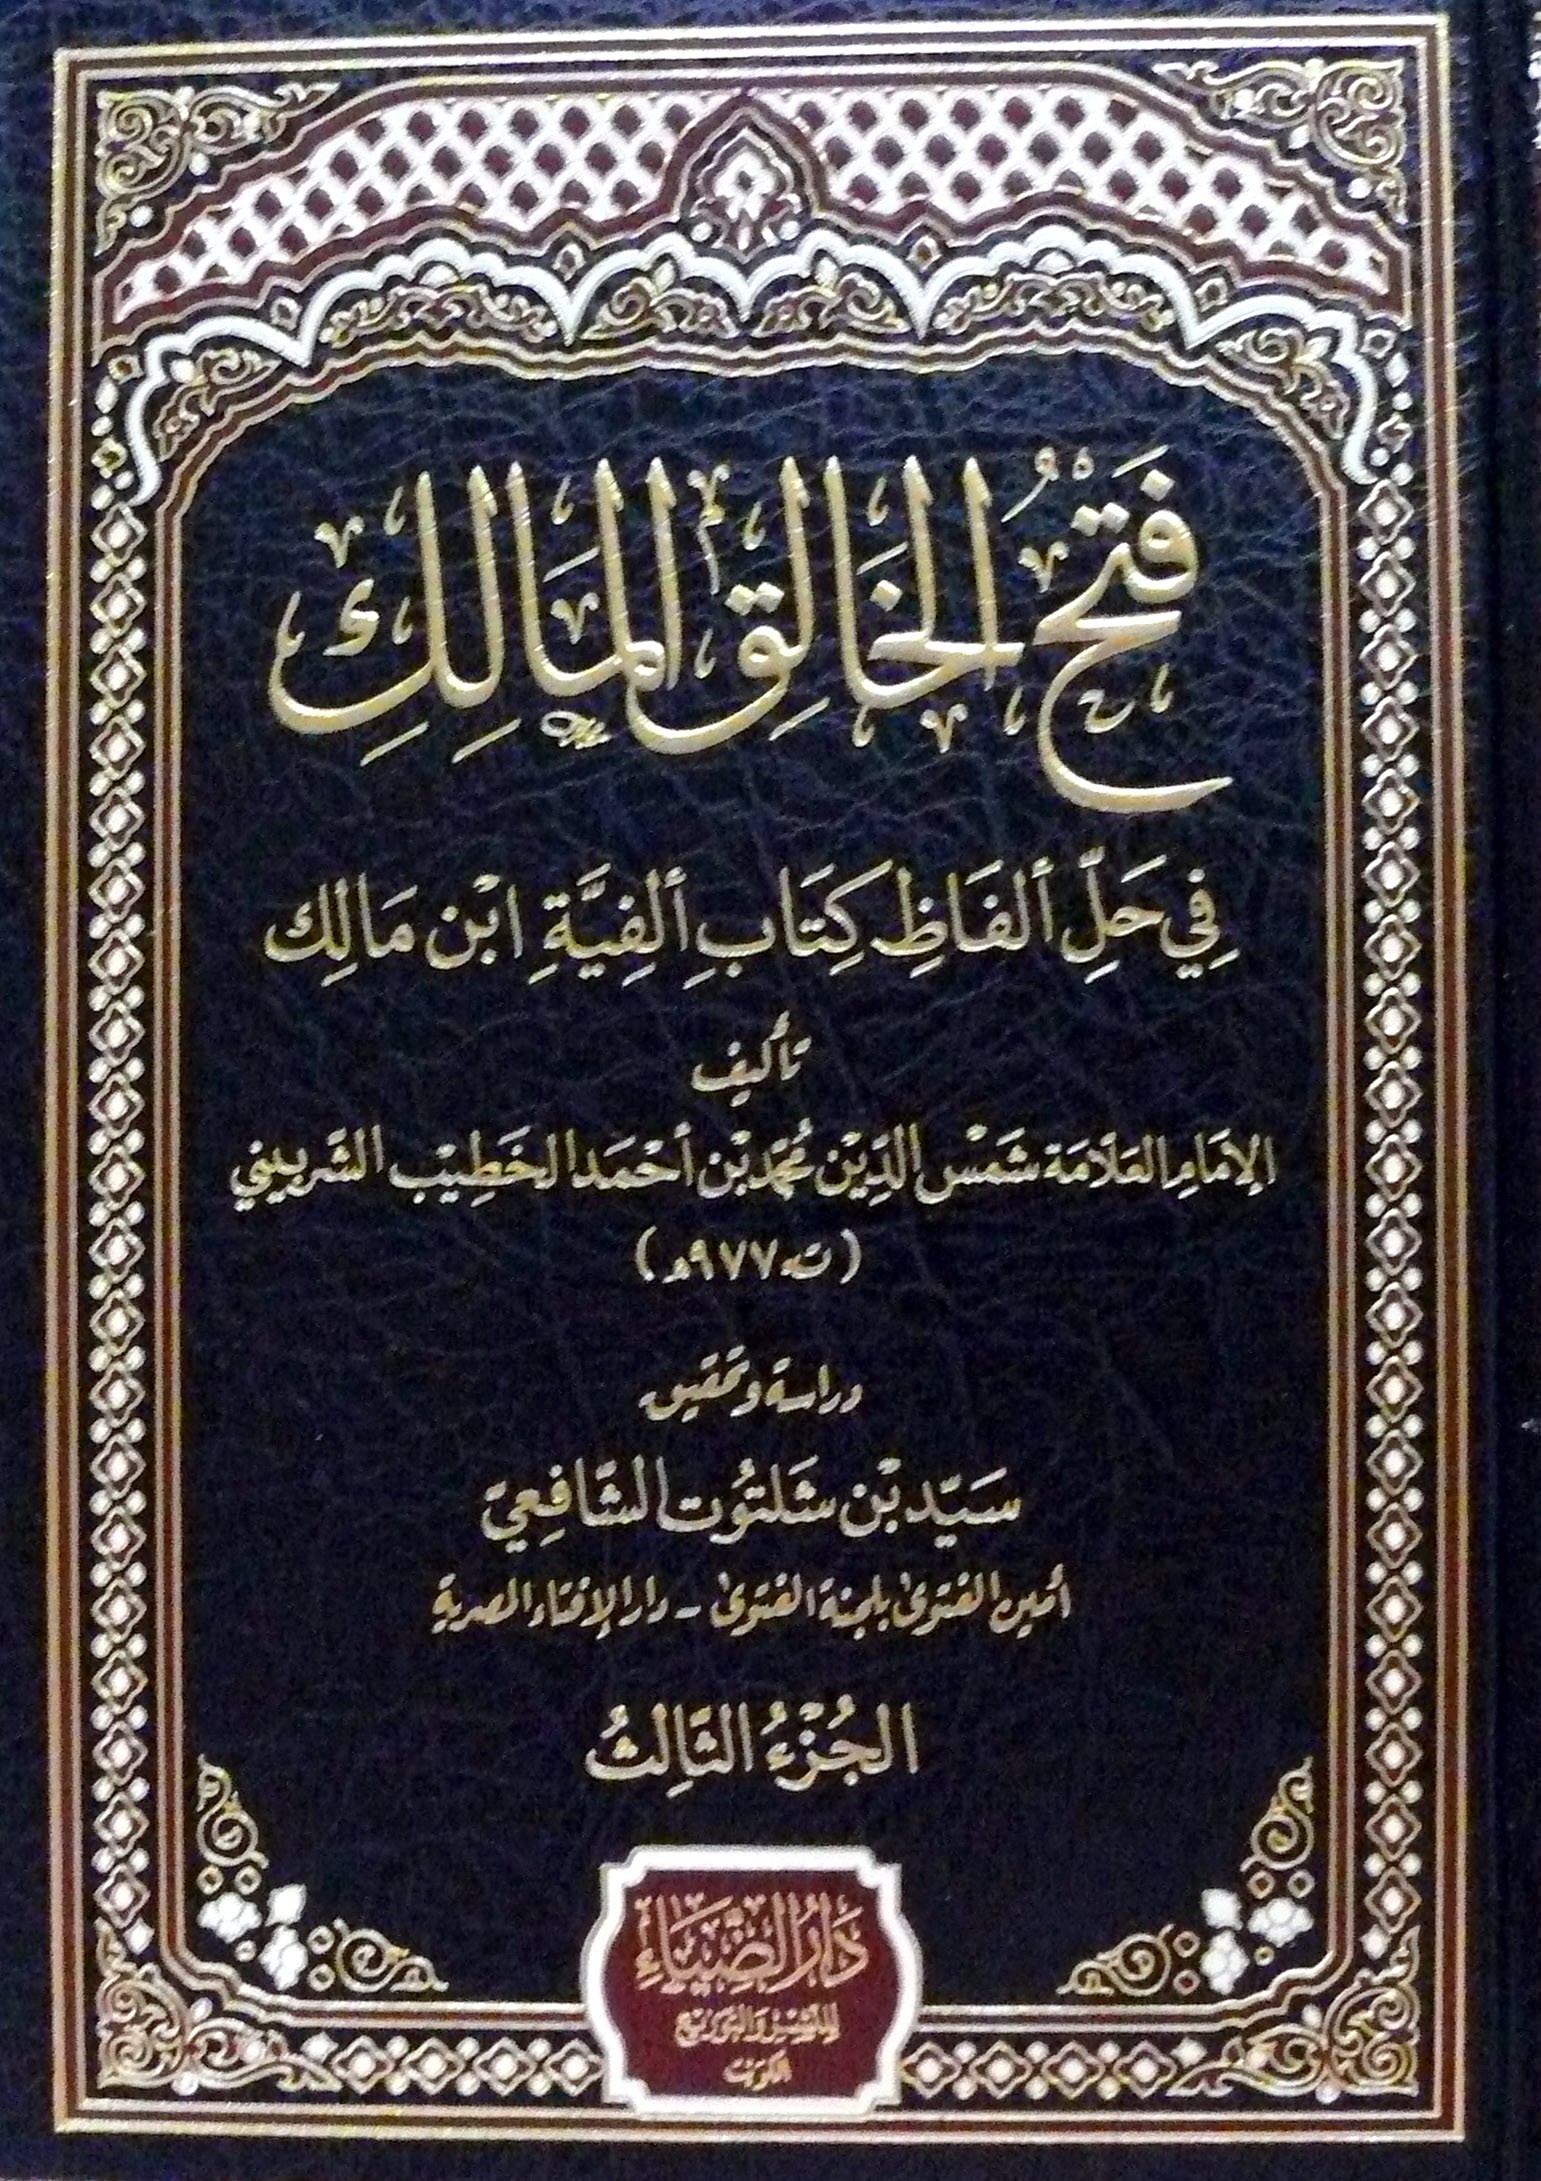 فَتْحُ الخَالِقِ المَالِكِ
فِي حَلِّ ألفَاظِ كِتَابِ ألفِيَّةِ ابْن مَالِك
تأليف
الإمَامِ العَلاَّمَة شَمْس الدِّيْن مُحَمَّد بْن أحْمَد الخَطِيْب الشربيني
(ت ٩٧٧هـ)
دراسة وتحقيق
سَيّد بْن شَلتُوت الشَّافِعِيّ
أمين الفتوى بلجنة الفتوى - دار الإفتاء المصرية
الجُزْءُ الثَّالِثُ
دَارُ الضِّيَاءِ
للنشر والتوزيع
الكويت